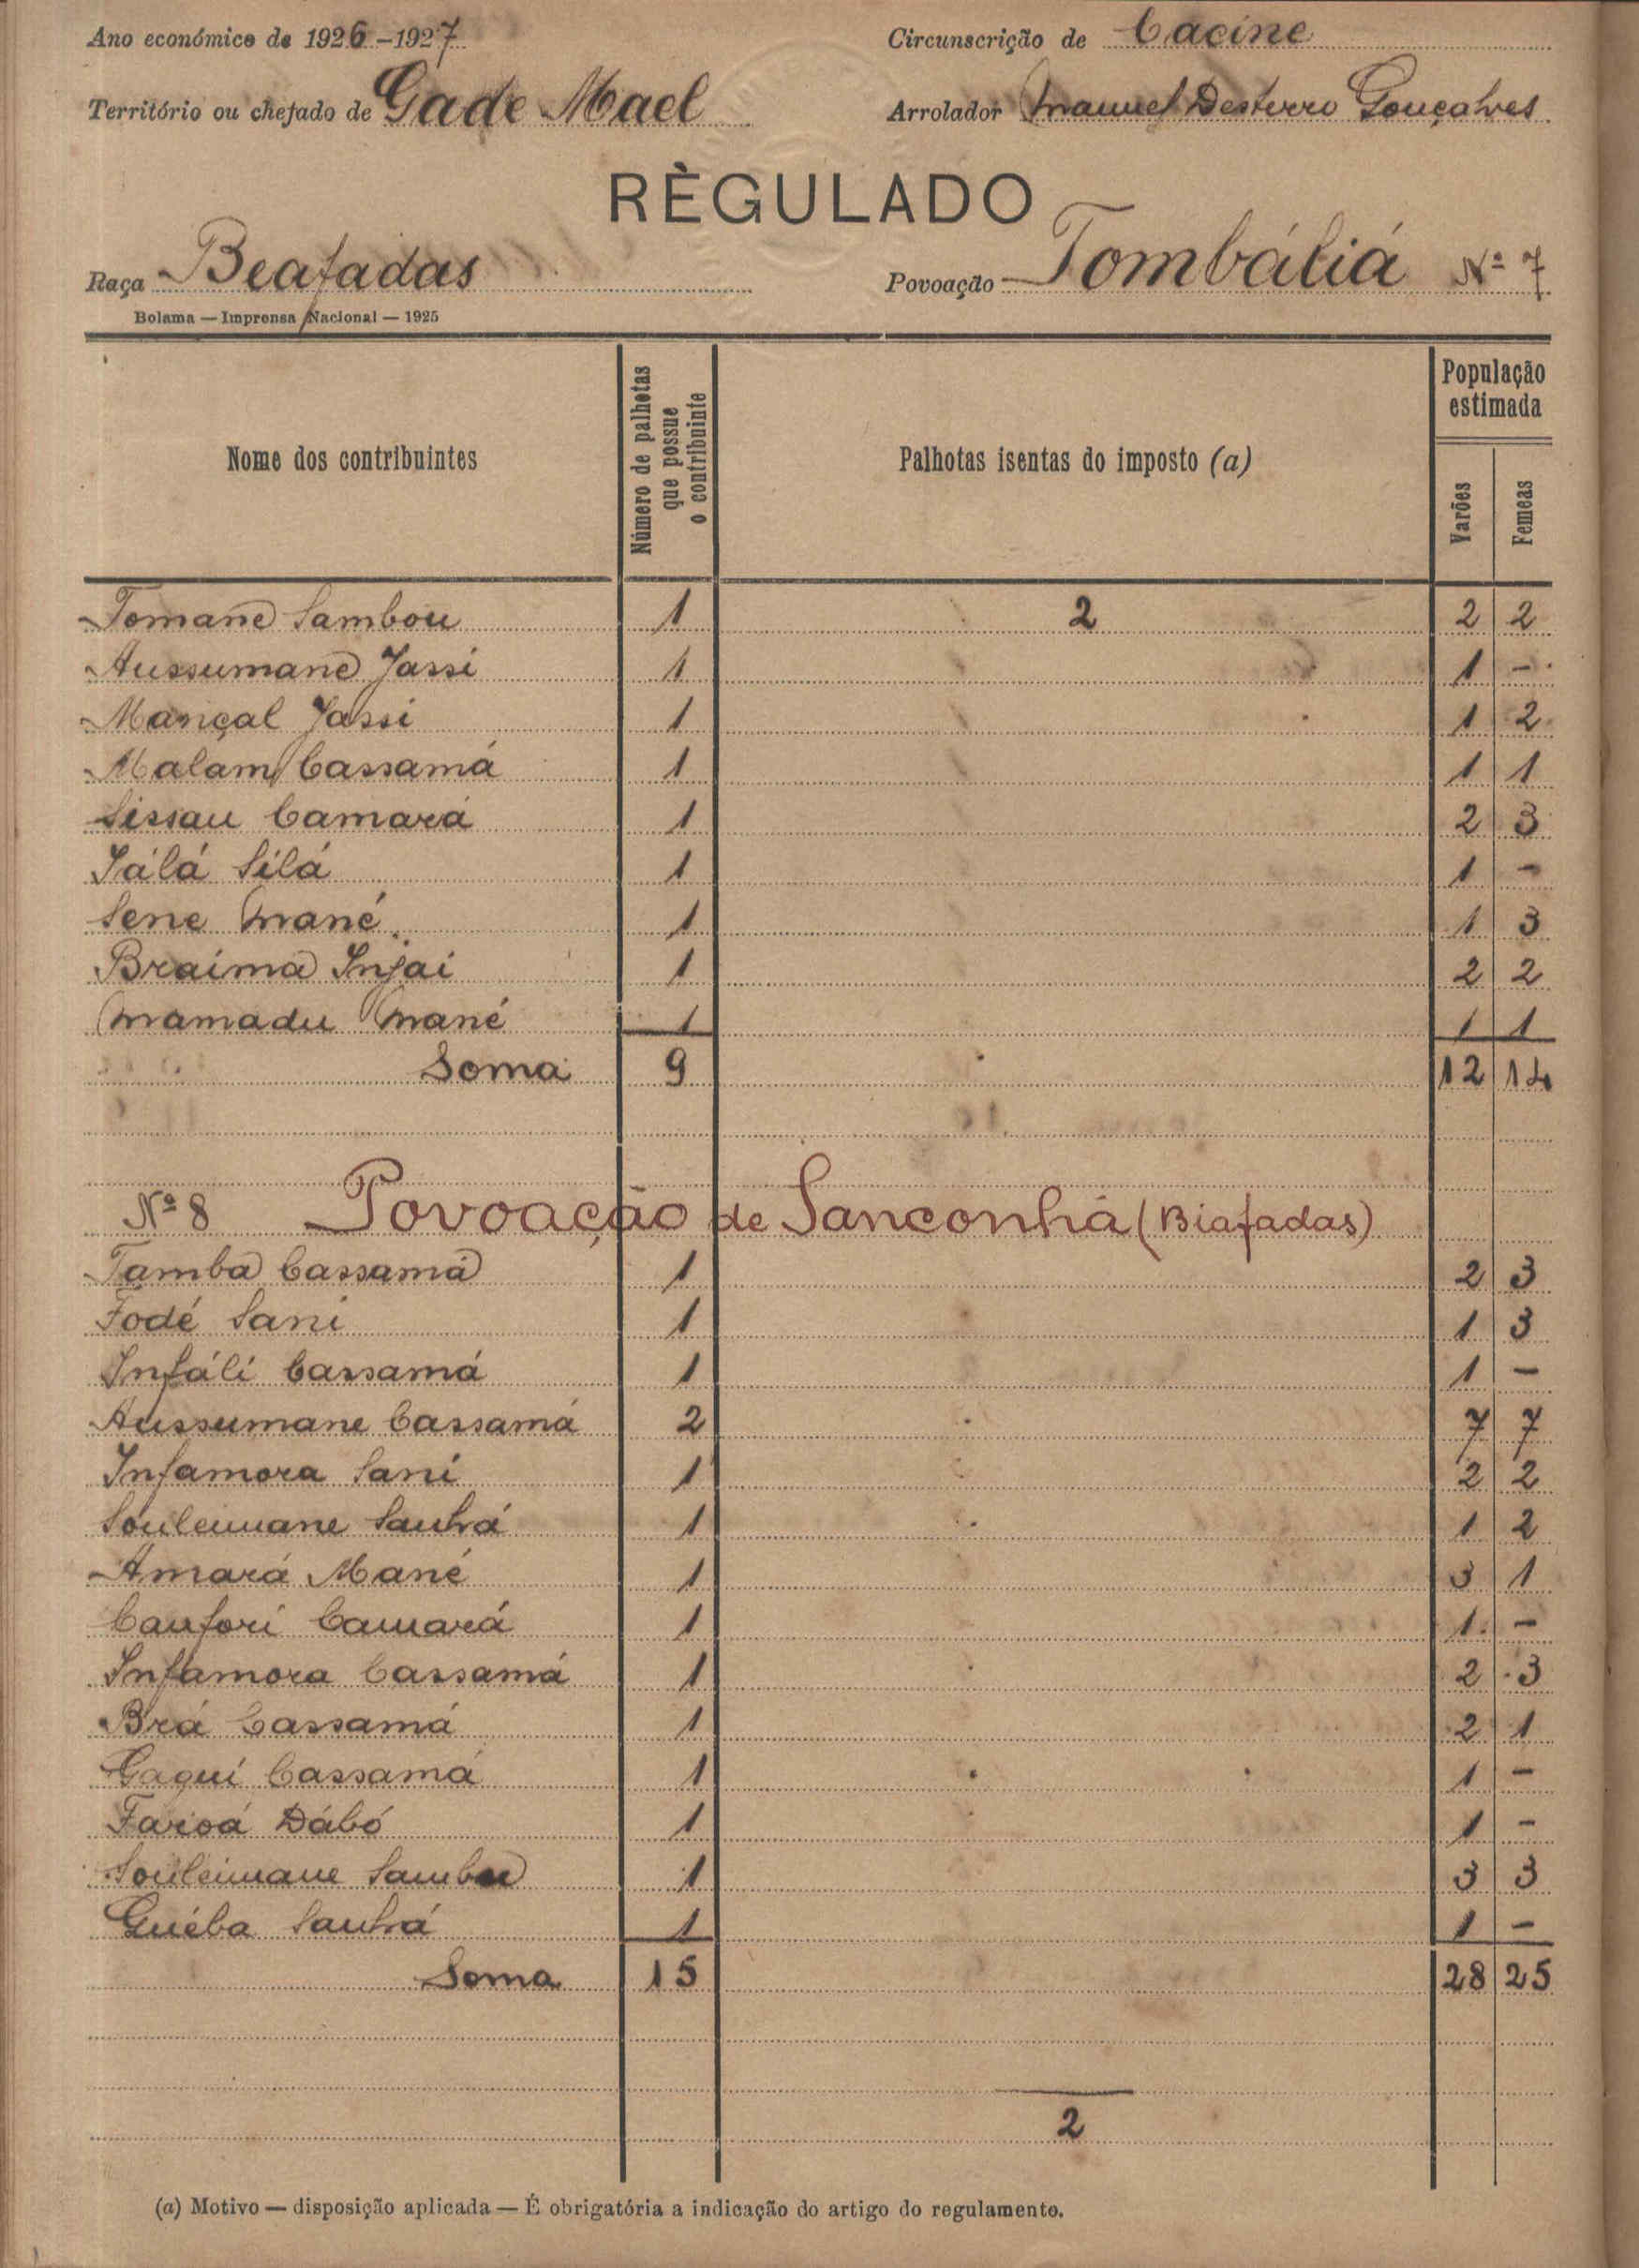 Ano económico de 1926-1927 Circunscrição de Cacine
Território ou chefado de Gade Mael Arrolador Manuel Desterro Gonçalves
RÈGULADO
Raça Beafadas Povoação Tombáliá Nº 7
Bolama — Imprensa Nacional — 1925
Nome dos contribuintes Número de palhotas que possue o contribuinte Palhotas isentas do imposto (a) População estimada
Varões Femeas
Tomane Sambou 1 2 2 2
Aussumane Jassi 1 1 -
Mançal Jassi 1 1 2
Malam Cassamá 1 1 1
Sissau Camará 1 2 3
Jálá Silá 1 1 -
Sene Mané 1 1 3
Braima Injai 1 2 2
Mamadu Mané 1 1 1
Soma 9 12 14
Nº 8 Povoação de Sanconhá (Biafadas)
Tamba Cassamá 1 2 3
Fodé Sani 1 1 3
Infáli Cassamá 1 1 -
Aussumane Cassamá 2 7 7
Infamora Sani 1 2 2
Souleimane Sanhá 1 1 2
Amará Mané 1 3 1
Canfori Camará 1 1 -
Infamora Cassamá 1 2 3
Brá Cassamá 1 2 1
Gagui Cassamá 1 1 -
Farioá Dábó 1 1 -
Souleimane Sambu 1 3 3
Guéba Sanhá 1 1 -
Soma 15 28 25
2
(a) Motivo — disposição aplicada — É obrigatória a indicação do artigo do regulamento.